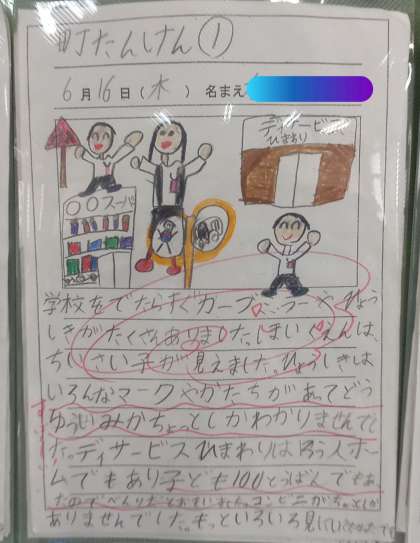 町たんけん①
6月16日(木) 名まえ
デイサービス
ひまわり
〇〇スーパー
学校をでたらすぐカーブミラーやひょう
しきがたくさんありました。しまい
ちいさい子が見えました。ひょうしきは
いろんなマークやかたちがあってどう
ゆういみかちょっとしかわかりませんでし
た。デイサービスひまわりはろう人ホー
ムでもあり子ども100とうばんでもあ
ったのでべんりだとおもいました。コンビニが
ありませんでした。もっといろいろ見